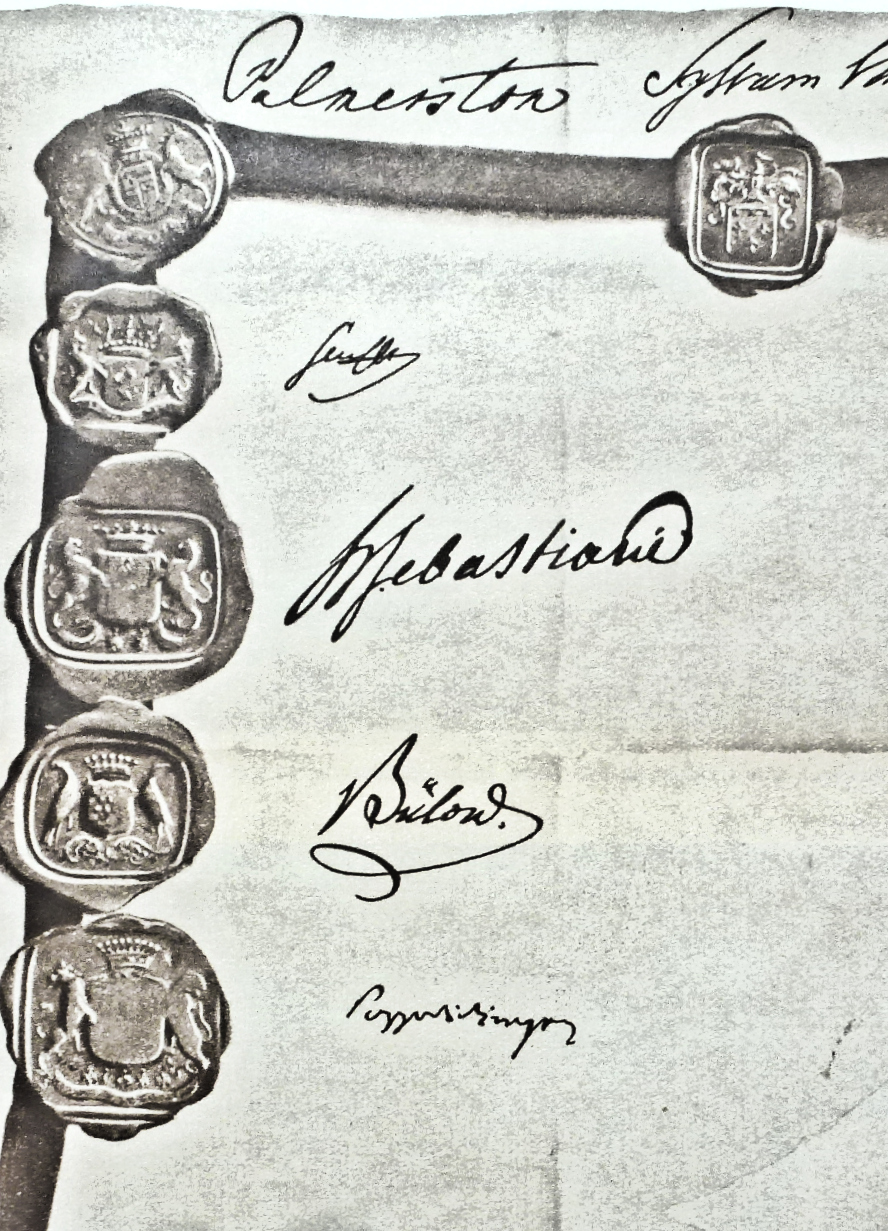 Palmerston Sylvain V
Senfft
H Sebastiani
Bülow.
Pozzo di Borgo